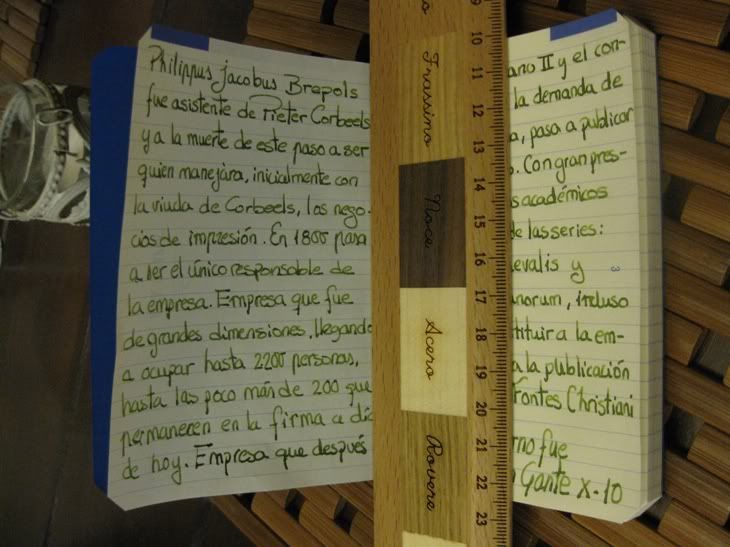 Philippus Jacobus Brepols
fue asistente de Pieter Corbeels
y a la muerte de este paso a ser
quien manejára, inicialmente con
la viuda de Corbeels, los nego-
cios de impresión. En 1800 pasa
a ser el único responsable de
la empresa. Empresa que fue
de grandes dimensiones, llegando
a ocupar hasta 2200 personas,
hasta las poco más de 200 que
permanecen en la firma a día
de hoy. Empresa que después
9
10
11
12
13
14
15
16
17
18
19
20
21
22
23
Frassino
Noce
Acero
Rovere
ano II y el con-
la demanda de
a, pasa a publicar
o. Con gran pres-
s académicos
de las series:
evalis y
norum, incluso
tituir a la em-
a la publicación
Fontes Christiani
rno fue
Gante X-10